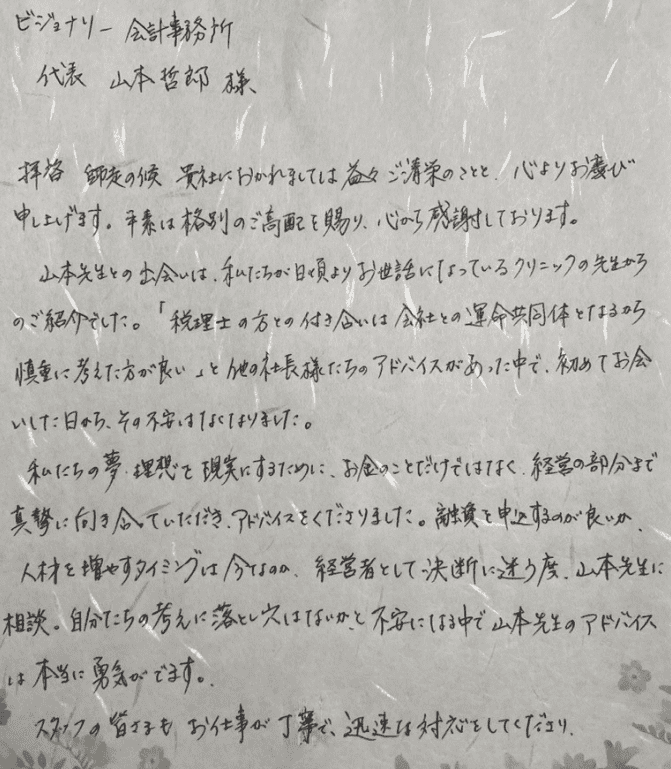 ビジョナリー 会計事務所
代表 山本哲郎 様
拝啓 師走の候 貴社におかれましては益々ご清栄のことと、心よりお慶び
申し上げます。平素は格別のご高配を賜り、心から感謝しております。
山本先生との出会いは、私たちが日頃よりお世話になっているクリニックの先生から
のご紹介でした。「税理士の方との付き合いは会社との運命共同体となるから
慎重に考えた方が良い」と他の社長様たちのアドバイスがあった中で、初めてお会
いした日から、その不安はなくなりました。
私たちの夢・理想を現実にするために、お金のことだけではなく、経営の部分まで
真摯に向き合っていただき、アドバイスをくださりました。融資を申込するのが良いか、
人材を増やすタイミングは今なのか、経営者として決断に迷う度、山本先生に
相談。自分たちの考えに落とし穴はないか、と不安になる中で山本先生のアドバイス
は本当に勇気がでます。
スタッフの皆さまも お仕事が丁寧で、迅速な対応をしてくださり、